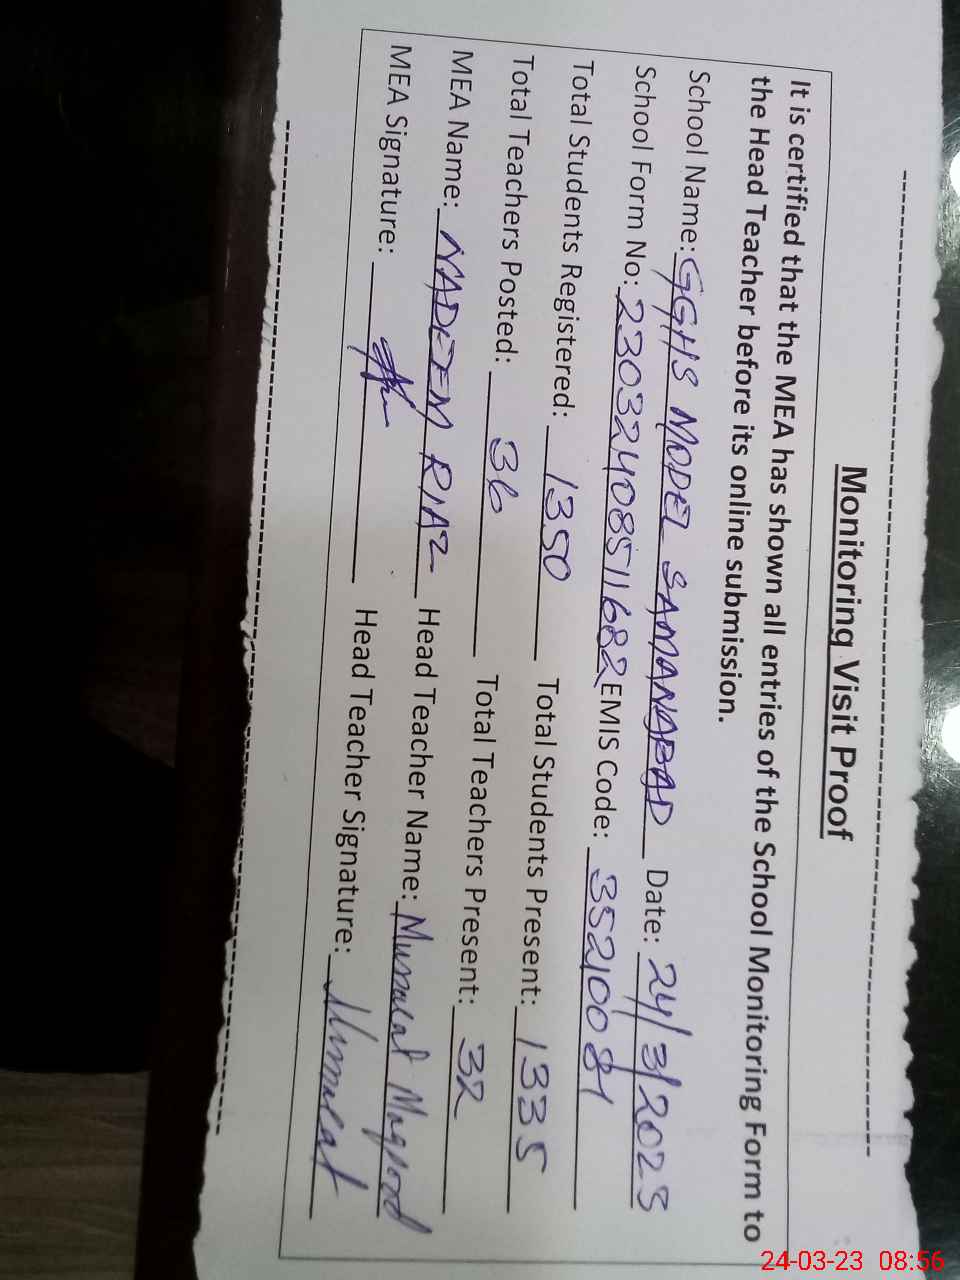 Monitoring Visit Proof
It is certified that the MEA has shown all entries of the School Monitoring Form to
the Head Teacher before its online submission.
School Name: GGHS MODEL SAMANABAD Date: 24/3/2023
School Form No: 23032408511682 EMIS Code: 35210081
Total Students Registered: 1350 Total Students Present: 1335
Total Teachers Posted: 36 Total Teachers Present: 32
MEA Name: NADEEM RIAZ Head Teacher Name: Musarat Maqsood
MEA Signature: Head Teacher Signature: Musarat
24-03-23 08:56